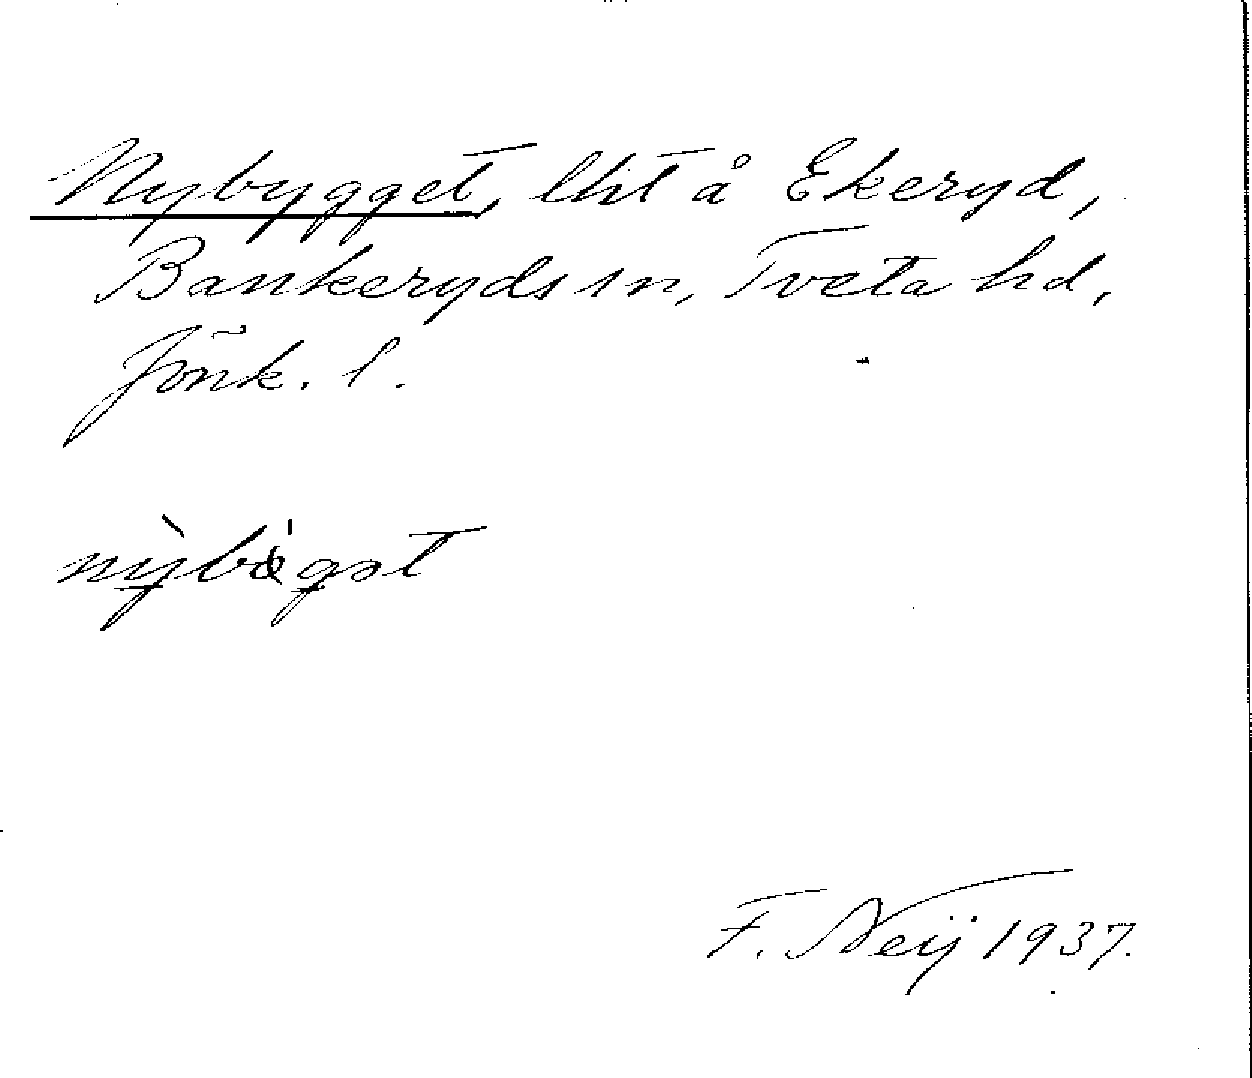 Nybygget, lht å Ekeryd,
Bankeryds sn, Tveta hd,
Jönk. l.
F. Neij 1937.